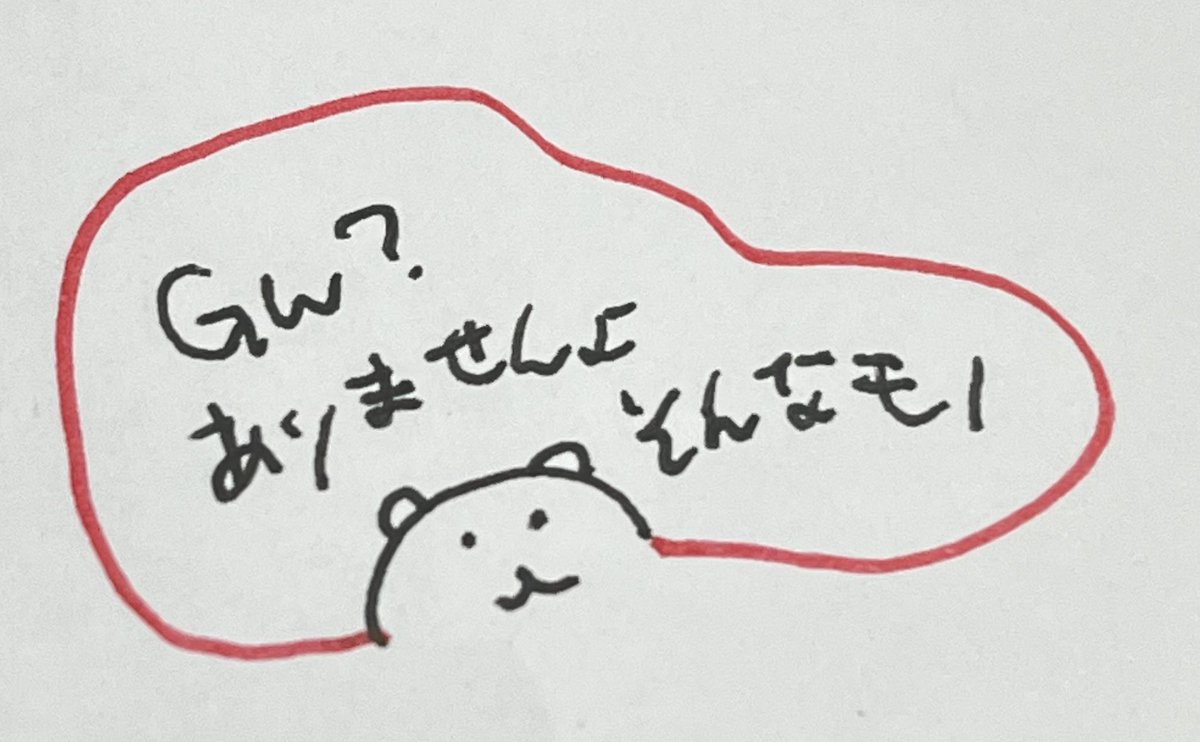 GW?
ありませんよ
そんなモノ